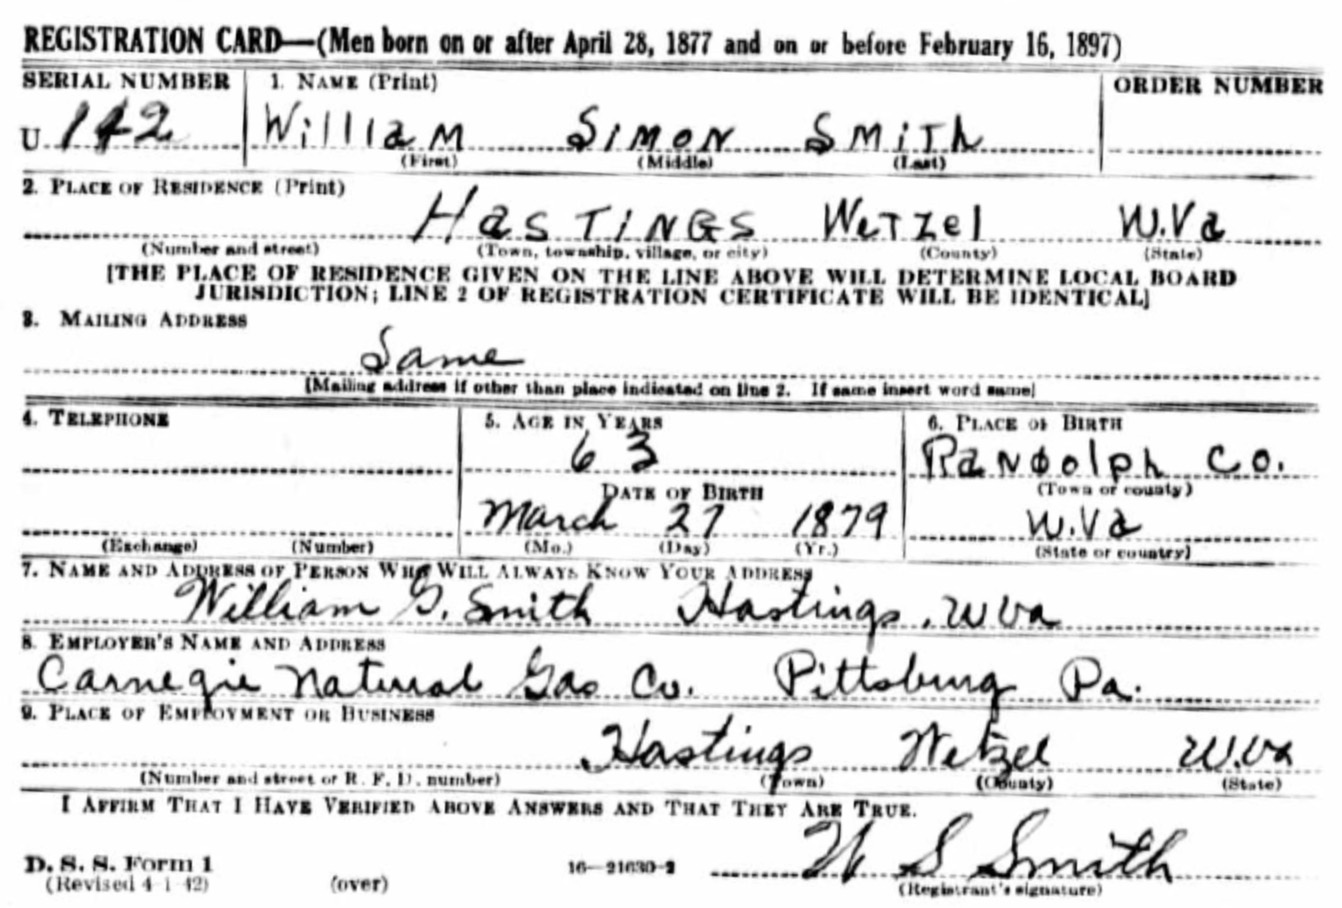 REGISTRATION CARD—(Men born on or after April 28, 1877 and on or before February 16, 1897)
SERIAL NUMBER 1. NAME (Print) ORDER NUMBER
U 142 William Simon Smith
(First) (Middle) (Last)
2. PLACE OF RESIDENCE (Print)
Hastings Wetzel W.Va
(Number and street) (Town, township, village, or city) (County) (State)
[THE PLACE OF RESIDENCE GIVEN ON THE LINE ABOVE WILL DETERMINE LOCAL BOARD
JURISDICTION; LINE 2 OF REGISTRATION CERTIFICATE WILL BE IDENTICAL]
3. MAILING ADDRESS
Same
[Mailing address if other than place indicated on line 2. If same insert word same]
4. TELEPHONE 5. AGE IN YEARS 6. PLACE OF BIRTH
63 Randolph Co.
DATE OF BIRTH (Town or county)
March 27 1879 W.Va
(Exchange) (Number) (Mo.) (Day) (Yr.) (State or country)
7. NAME AND ADDRESS OF PERSON WHO WILL ALWAYS KNOW YOUR ADDRESS
William G. Smith Hastings, W Va
8. EMPLOYER'S NAME AND ADDRESS
Carnegie Natural Gas Co. Pittsburg Pa.
9. PLACE OF EMPLOYMENT OR BUSINESS
Hastings Wetzel W.Va
(Number and street or R. F. D. number) (Town) (County) (State)
I AFFIRM THAT I HAVE VERIFIED ABOVE ANSWERS AND THAT THEY ARE TRUE.
W S Smith
D. S. S. Form 1 16—21630-2
(Revised 4-1-42) (over) (Registrant's signature)